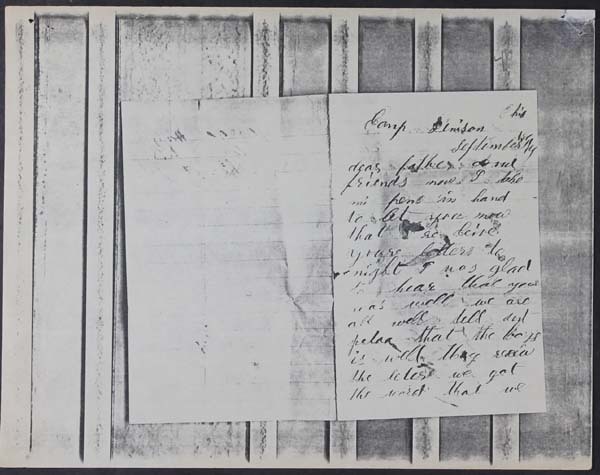 Ohio
Camp Denison
September
dear father and
friends now I take
mi pen in hand
to let you now
that I re ceive
youre letters to
night I was glad
to hear that you
was well we are
all well tell
that the boys
is well they
the letters we got
the word that we